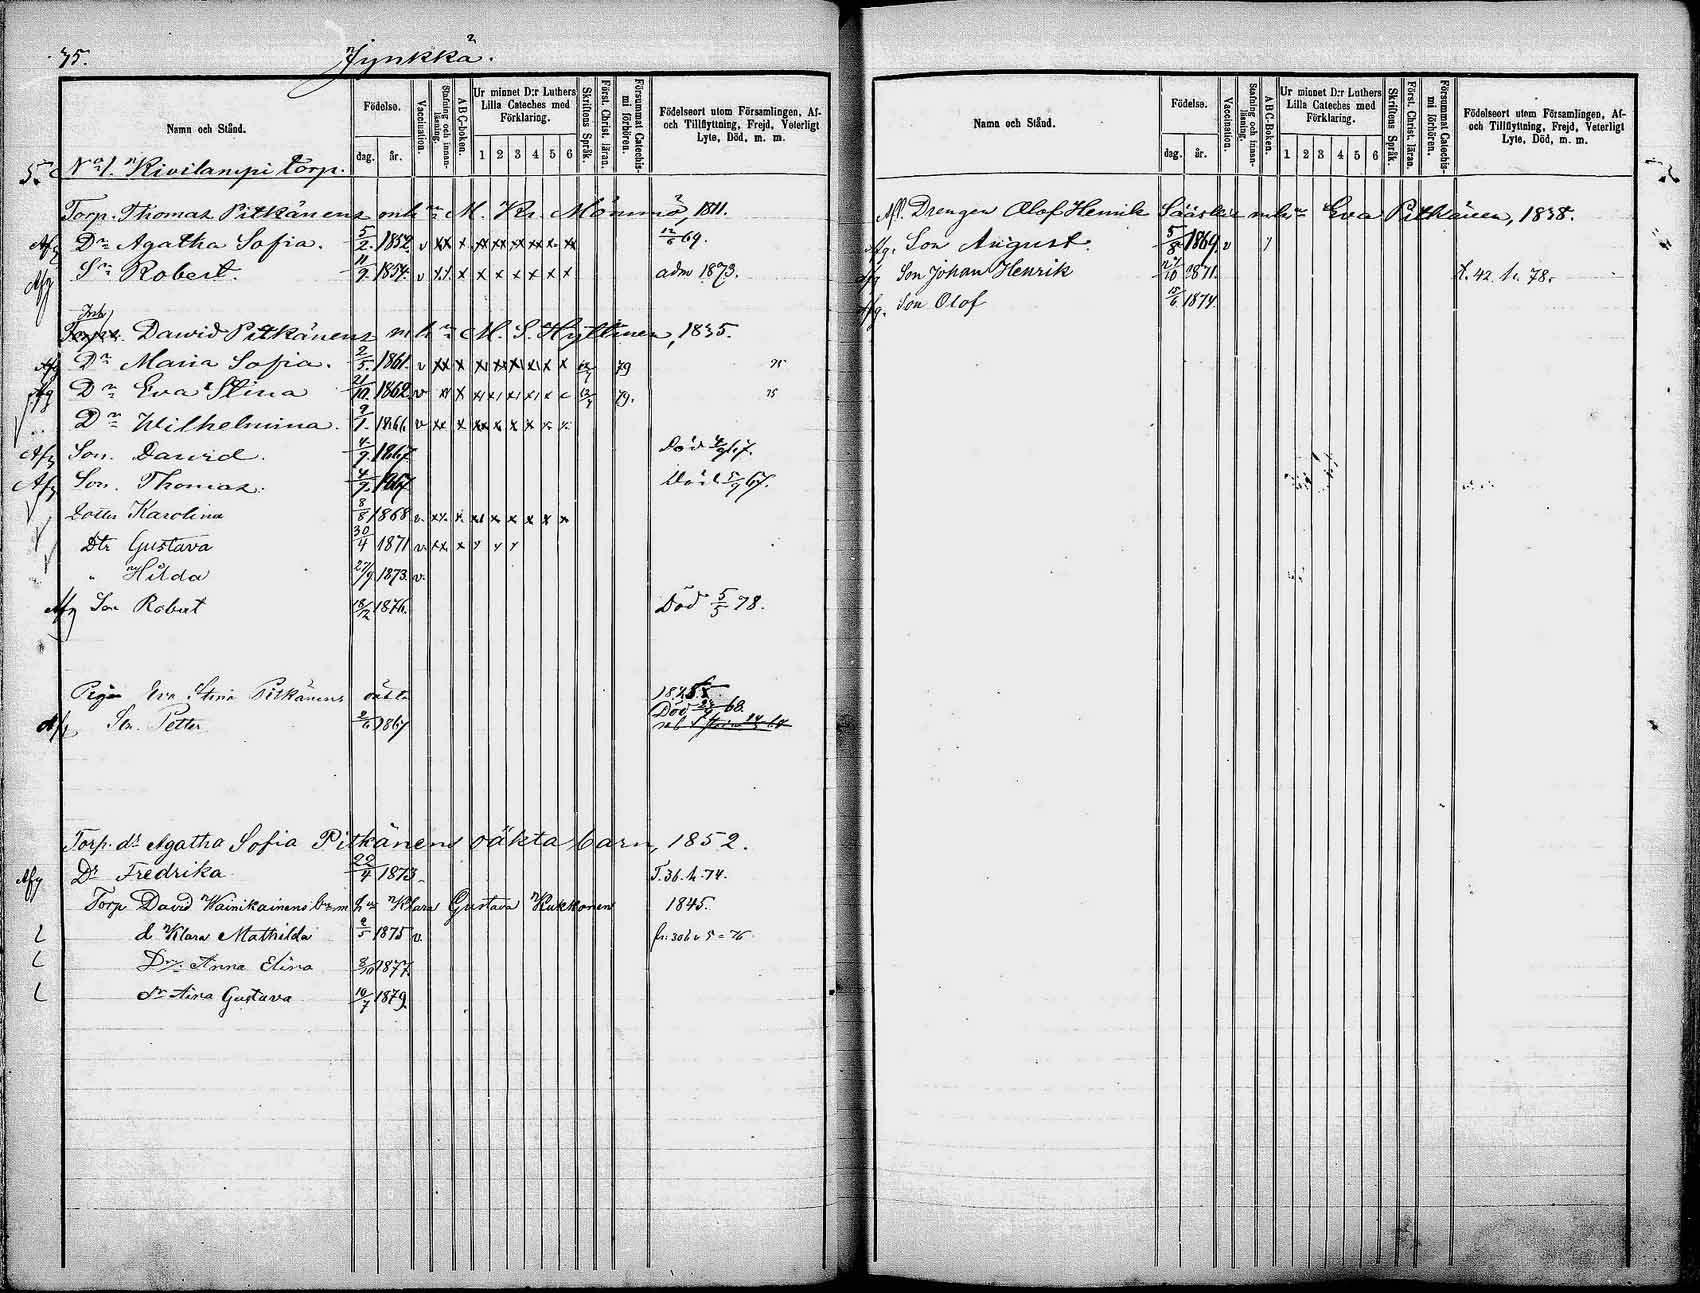 75.
Jynkkä.
Namn och Stånd.
Födelse.
dag. år.
Vaccination.
Stafning och innan-läsning.
ABC-boken.
Ur minnet D:r Luthers Lilla Cateches med Förklaring.
1 2 3 4 5 6
Skriftens Språk.
Först. Christ. läran.
Försummat Catechismi förhören.
Födelseort utom Församlingen, Af- och Tillflyttning, Frejd, Veterligt Lyte, Död, m. m.
No 1. Kivilampi torp.
Torp. Thomas Pitkänens enk M. Kr. Mömmö, 1811.
Afg Dr Agatha Sofia. 5/2. 1852. v 12/6 69.
Afg Sn Robert. 11/9. 1854. v adm 1873.
Inh Torp. Dawid Pitkänens m h M. S. Hyttinen, 1835.
Afg Dr Maria Sofia. 2/5. 1861. v 79 75
Afg Dr Eva Stina 21/10. 1862. v 79. 75
Dr Wilhelmina. 9/1. 1866. v
Afg Son. Dawid. 4/9. 1867. Död
Afg Son. Thomas. 4/9. 1867 Död 5/9 67.
Dotter Karolina 8/8 1868 v.
Dtr Gustava 30/4 1871 v.
" Hilda 27/9 1873. v.
Afg Son Robert 18/2 1876. Död 5/5 78.
Pigan Eva Stina Pitkänens oäkta
Afg Sn. Petter 1867 Död 68.
Torp. dr Agatha Sofia Pitkänens oäkta barn, 1852.
Afg Dr Fredrika 22/4 1873. T. 36. h. 74.
Torp David Wainikainens barn m h Klara Gustava Kukkonen 1845.
d Klara Mathilda 2/5 1875 v.
Dr Anna Elina 8/10 1877.
dr Aina Gustava 10/7 1879.
Namn och Stånd.
Födelse.
dag. år.
Vaccination.
Stafning och innan-läsning.
ABC-Boken.
Ur minnet D:r Luthers Lilla Cateches med Förklaring.
1 2 3 4 5 6
Skriftens Språk.
Först. Christ. läran.
Försummat Catechismi förhören.
Födelseort utom Församlingen, Af- och Tillflyttning, Frejd, Veterligt Lyte, Död, m. m.
Afl. Drengen Olof Henrik Eva Pitkänen, 1838.
Afg. Son August. 5/8 1869 v
Afg Son Johan Henrik 27/10 1871. t. 42. h. 78.
Afg. Son Olof 15/6 1874